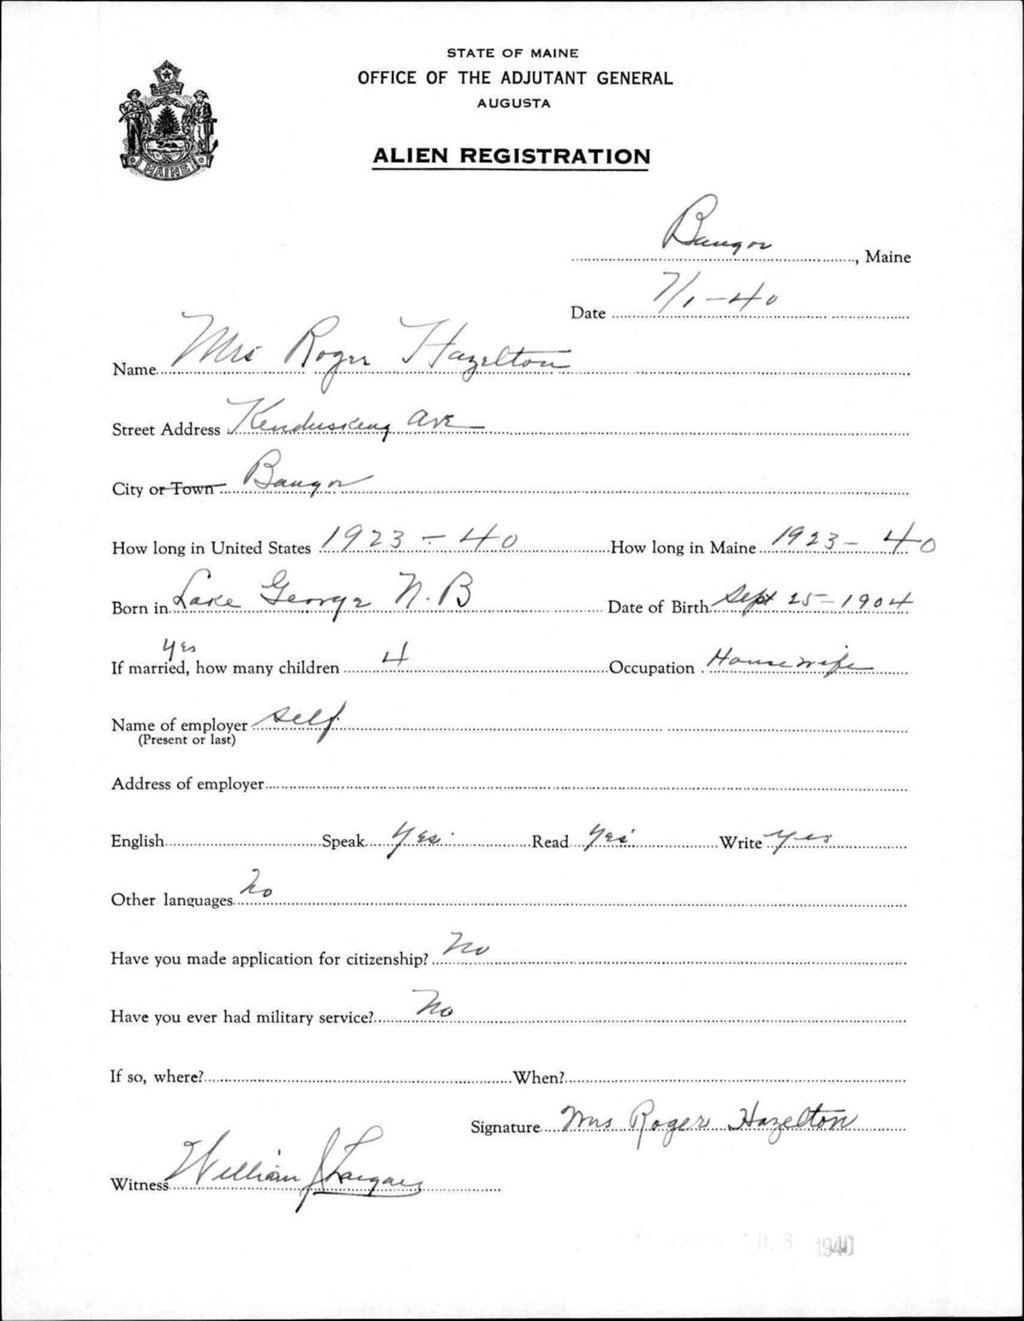 STATE OF MAINE
OFFICE OF THE ADJUTANT GENERAL
AUGUSTA
MAINE
ALIEN REGISTRATION
Bangor, Maine
Date 7/1-40
Name Mrs Roger Hazelton
Street Address Kenduskeag Ave
City or Town Bangor
How long in United States 1923-40 How long in Maine 1923-40
Born in Lake George N.B Date of Birth Sept 25-1904
yes
If married, how many children 4 Occupation Housewife
Name of employer self
(Present or last)
Address of employer
English Speak Yes Read Yes Write Yes
Other languages no
Have you made application for citizenship? No
Have you ever had military service? No
If so, where? When?
Signature Mrs Roger Hazelton
Witness William J
1940